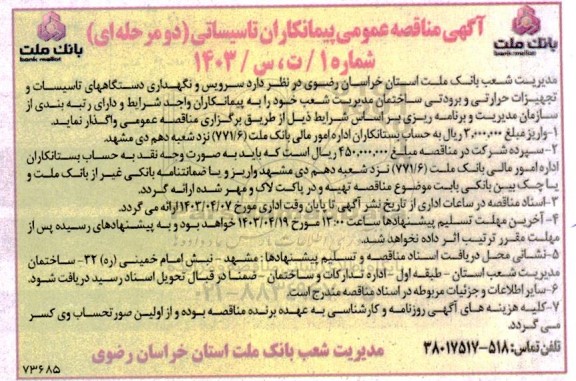 آگهی مناقصه عمومی پیمانکاران تاسیساتی (دو مرحله ای)
شماره ۱/ت،س/۱۴۰۳
بانک ملت
bank mellat
بانک ملت
bank mellat
مدیریت شعب بانک ملت استان خراسان رضوی در نظر دارد سرویس و نگهداری دستگاههای تاسیسات و
تجهیزات حرارتی و برودتی ساختمان مدیریت شعب خود را به پیمانکاران واجد شرایط و دارای رتبه بندی از
سازمان مدیریت و برنامه ریزی بر اساس شرایط ذیل از طریق برگزاری مناقصه عمومی واگذار نماید.
۱-واریز مبلغ ۲,۰۰۰,۰۰۰ ریال به حساب بستانکاران اداره امور مالی بانک ملت (۷۷۱/۶) نزد شعبه دهم دی مشهد.
۲-سپرده شرکت در مناقصه مبلغ ۴۵۰,۰۰۰,۰۰۰ ریال است که باید به صورت وجه نقد به حساب بستانکاران
اداره امور مالی بانک ملت (۷۷۱/۶) نزد شعبه دهم دی مشهد واریز و یا ضمانتنامه بانکی غیر از بانک ملت و
یا چک بین بانکی بابت موضوع مناقصه تهیه و در پاکت لاک و مهر شده ارائه گردد.
۳-اسناد مناقصه در ساعات اداری از تاریخ نشر آگهی تا پایان وقت اداری مورخ ۱۴۰۳/۰۴/۰۷ ارائه می گردد.
۴- آخرین مهلت تسلیم پیشنهادها ساعت ۱۳:۰۰ مورخ ۱۴۰۳/۰۴/۱۹ خواهد بود و به پیشنهادهای رسیده پس از
مهلت مقرر ترتیب اثر داده نخواهد شد.
۵-نشانی محل دریافت اسناد مناقصه و تسلیم پیشنهادها: مشهد - نبش امام خمینی (ره) ۳۲- ساختمان
مدیریت شعب استان - طبقه اول - اداره تدارکات و ساختمان - ضمنا در قبال تحویل اسناد رسید دریافت شود.
۶-سایر اطلاعات و جزئیات مربوطه در اسناد مناقصه مندرج است.
۷-کلیه هزینه های آگهی روزنامه و کارشناسی به عهده برنده مناقصه بوده و از اولین صورتحساب وی کسر
می گردد.
تلفن تماس: ۵۱۸-۳۸۰۱۷۵۱۷
مدیریت شعب بانک ملت استان خراسان رضوی
۷۳۶۸۵